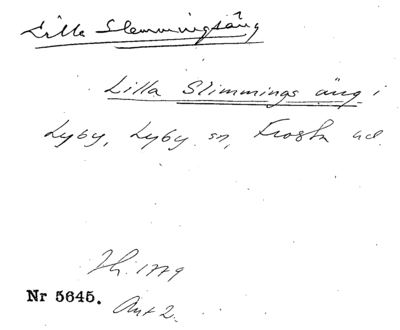 Lilla Slemmingsäng
Lilla Slimmings äng i
Lyby, Lyby sn, Frosta hd
Lh. 1779
Nr 5645.
Ant 2.